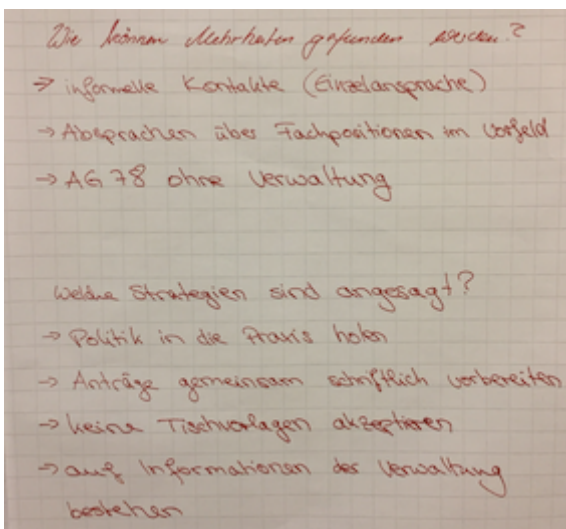 Wie können Mehrheiten gefunden werden?
→ informelle Kontakte (Einzelansprache)
→ Absprachen über Fachpositionen im Vorfeld
→ AG 78 ohne Verwaltung
Welche Strategien sind angesagt?
→ Politik in die Praxis holen
→ Anträge gemeinsam schriftlich vorbereiten
→ keine Tischvorlagen akzeptieren
→ auf Informationen der Verwaltung
bestehen